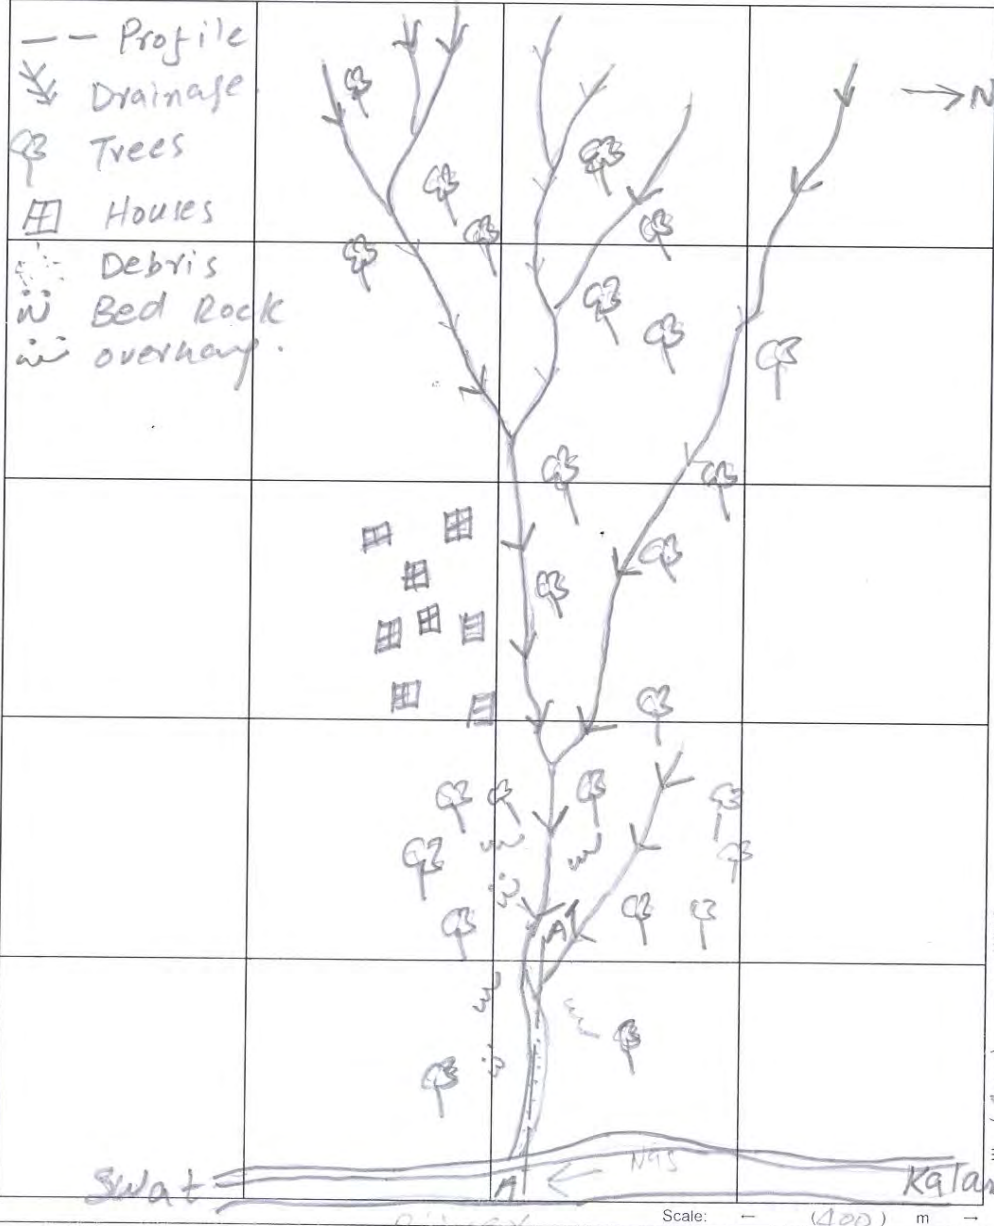 Profile
Drainage
→ N
Trees
Houses
Debris
Bed Rock
overhang.
A'
Swat
A
Kalam
Scale: ← (400) m →